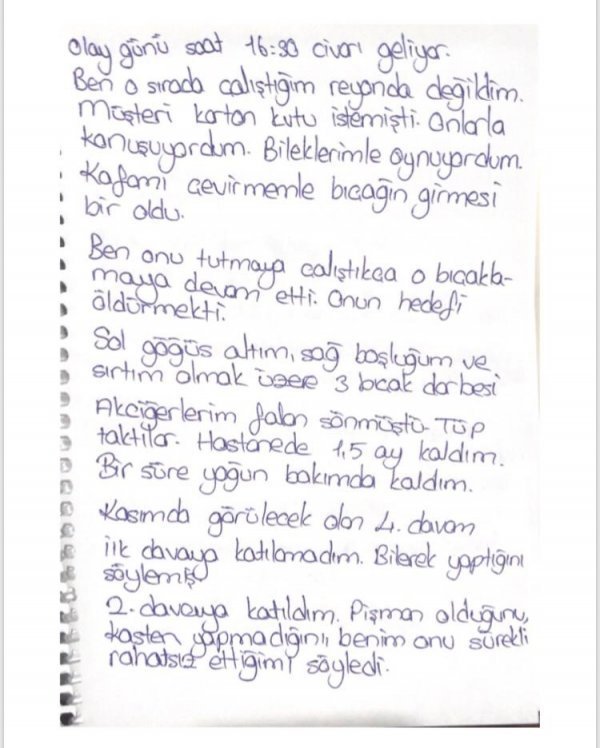 Olay günü saat 16:30 civarı geliyor.
Ben o sırada çalıştığım reyonda değildim.
Müşteri karton kutu istemişti. Onlarla
konuşuyordum. Bileklerimle oynuyordum.
Kafamı çevirmemle bıçağın girmesi
bir oldu.
Ben onu tutmaya çalıştıkça o bıçakla-
maya devam etti. Onun hedefi
öldürmekti.
Sol göğüs altım, sağ boşluğum ve
sırtım olmak üzere 3 bıçak darbesi
Akciğerlerim falan sönmüştü. Tüp
taktılar. Hastanede 1,5 ay kaldım.
Bir süre yoğun bakımda kaldım.
Kasımda görülecek olan 4. davam
İlk davaya katılamadım. Bilerek yaptığını
söylemiş
2. davaya katıldım. Pişman olduğunu,
kasten yapmadığını, benim onu sürekli
rahatsız ettiğimi söyledi.